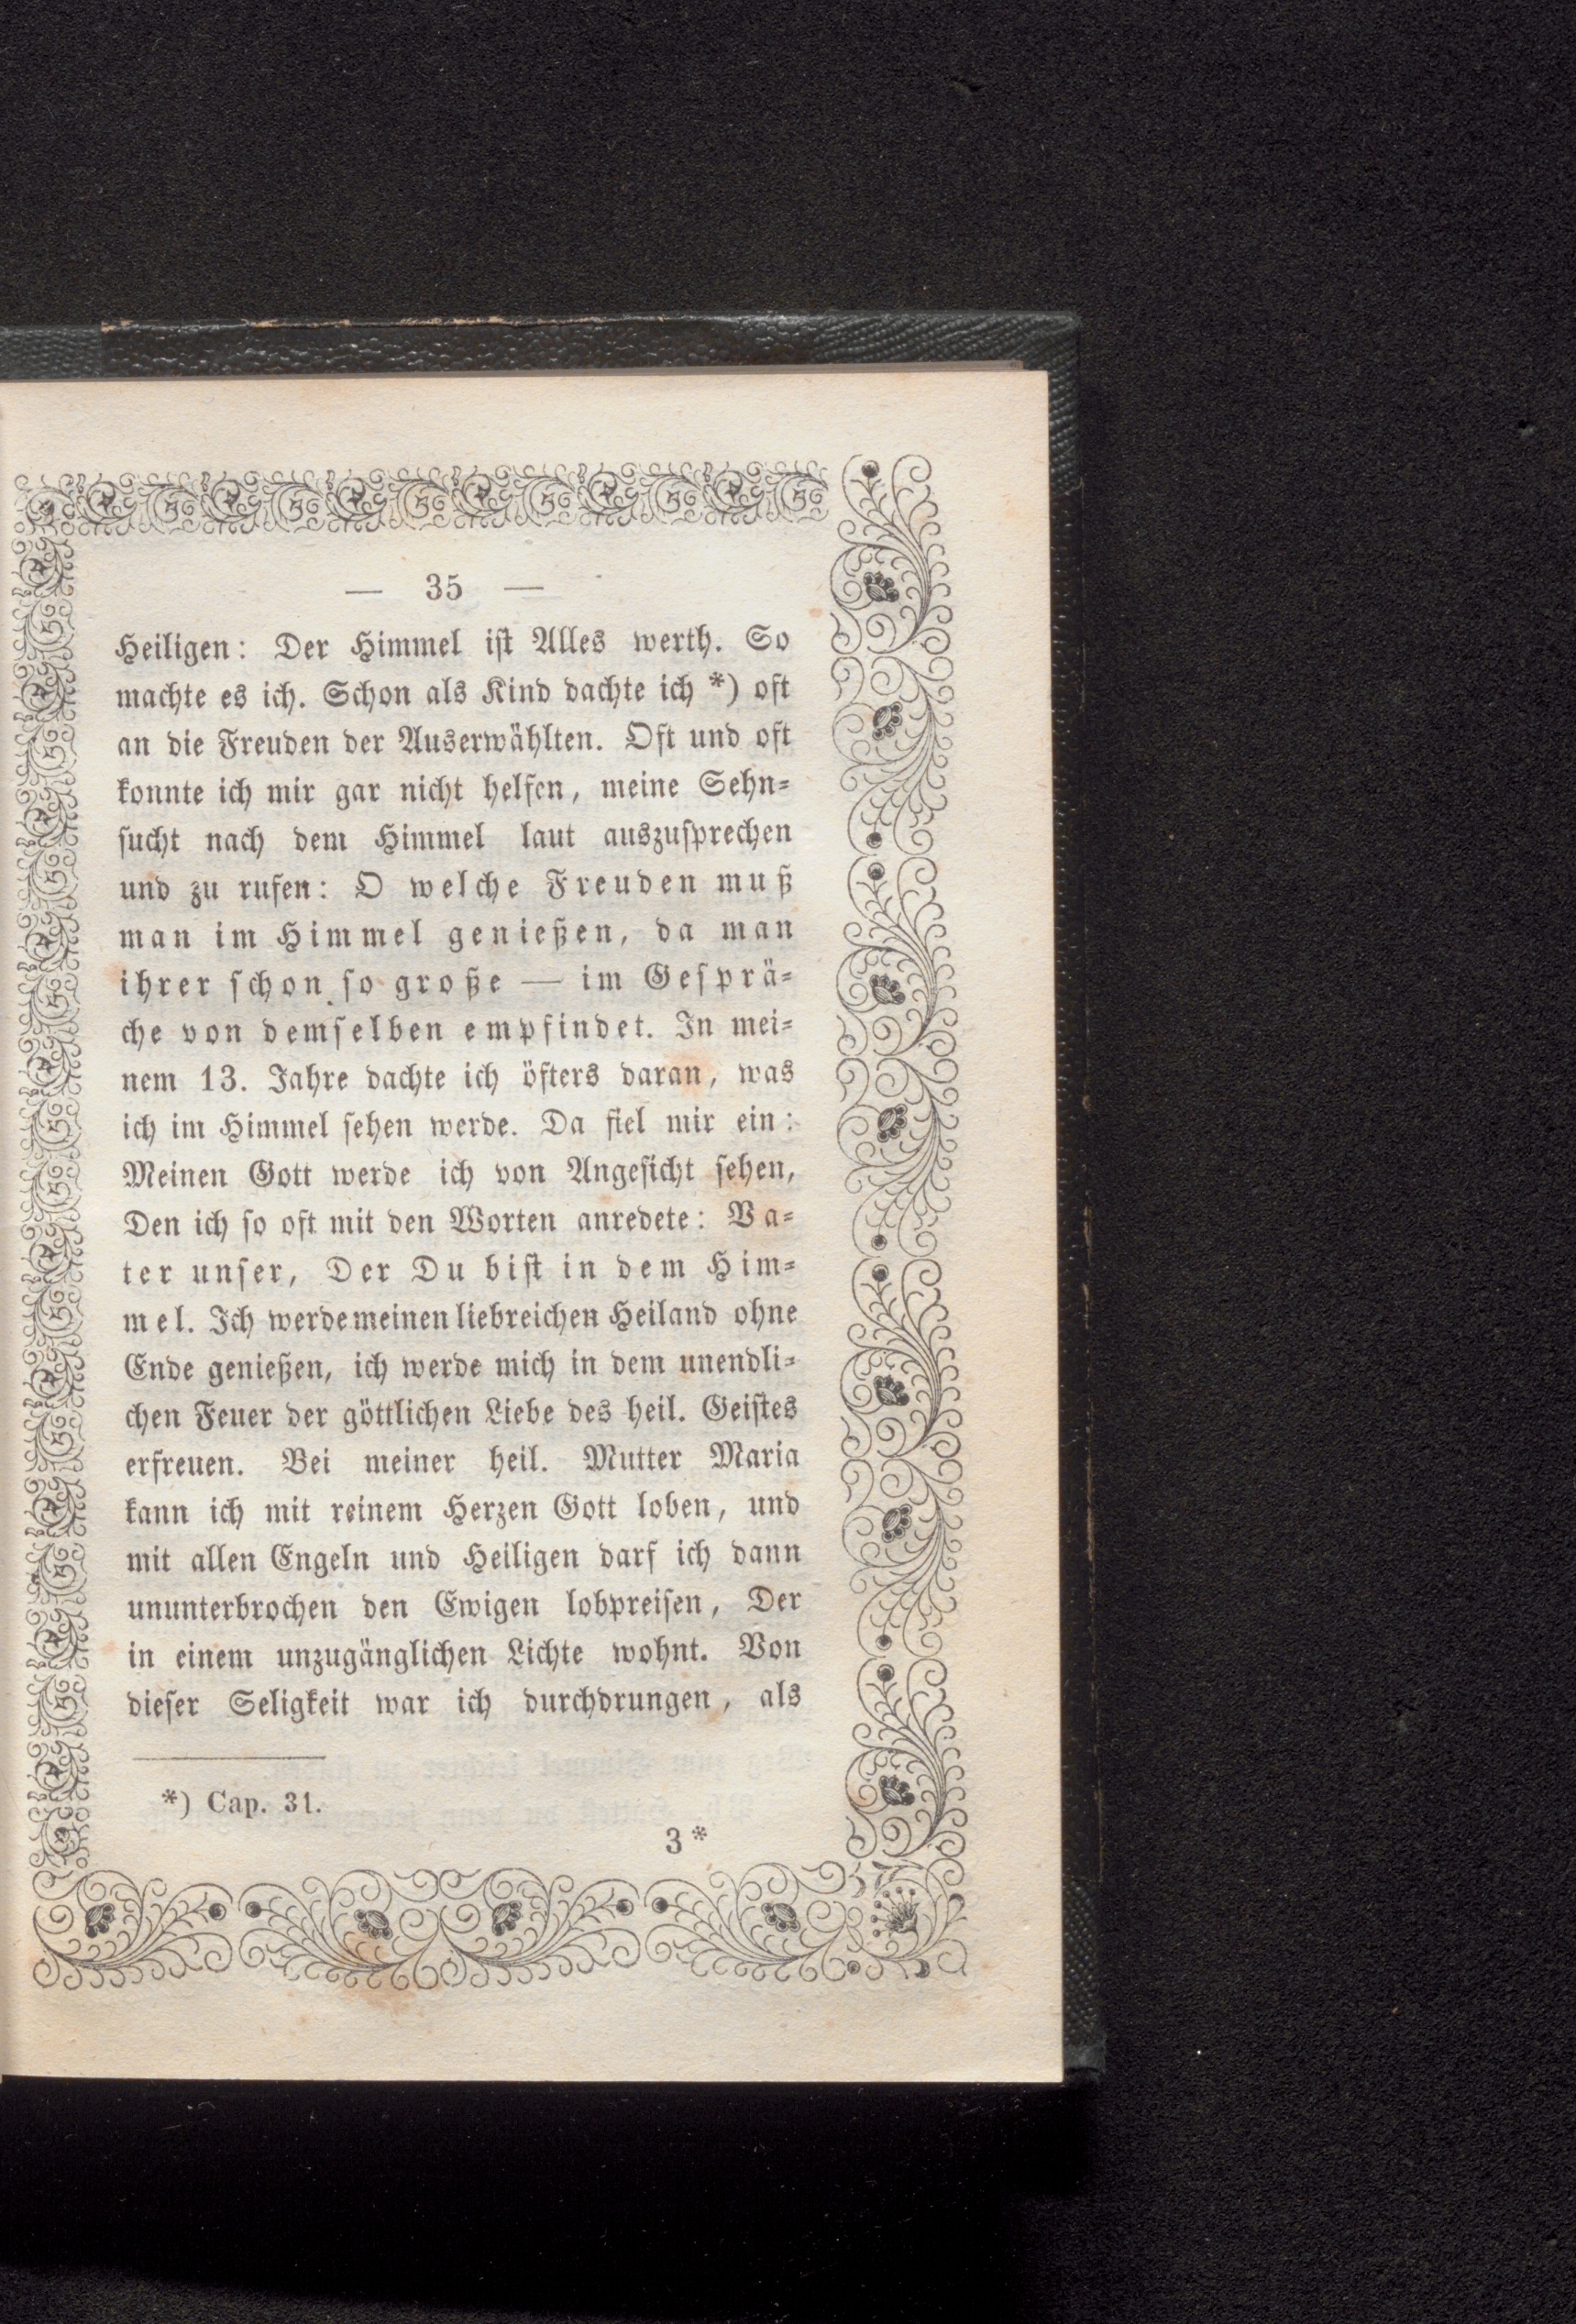 — 35 —
Heiligen: Der Himmel ist Alles werth. So
machte es ich. Schon als Kind dachte ich *) oft
an die Freuden der Auserwählten. Oft und oft
konnte ich mir gar nicht helfen, meine Sehn-
sucht nach dem Himmel laut auszusprechen
und zu rufen: O welche Freuden muß
man im Himmel genießen, da man
ihrer schon so große — im Gesprä-
che von demselben empfindet. In mei-
nem 13. Jahre dachte ich öfters daran, was
ich im Himmel sehen werde. Da fiel mir ein:
Meinen Gott werde ich von Angesicht sehen,
Den ich so oft mit den Worten anredete: Va-
ter unser, Der Du bist in dem Him-
mel. Ich werde meinen liebreichen Heiland ohne
Ende genießen, ich werde mich in dem unendli-
chen Feuer der göttlichen Liebe des heil. Geistes
erfreuen. Bei meiner heil. Mutter Maria
kann ich mit reinem Herzen Gott loben, und
mit allen Engeln und Heiligen darf ich dann
ununterbrochen den Ewigen lobpreisen, Der
in einem unzugänglichen Lichte wohnt. Von
dieser Seligkeit war ich durchdrungen, als
*) Cap. 31.
3*